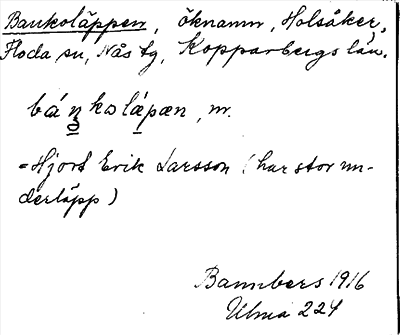 Bankoläppen, öknamn, Holsåker,
Floda sn, Nås tg, Kopparbergs län.
báŋkoläpæn, m.
= Hjort Erik Larsson (har stor un-
derläpp)
Bannbers 1916
Ulma 224